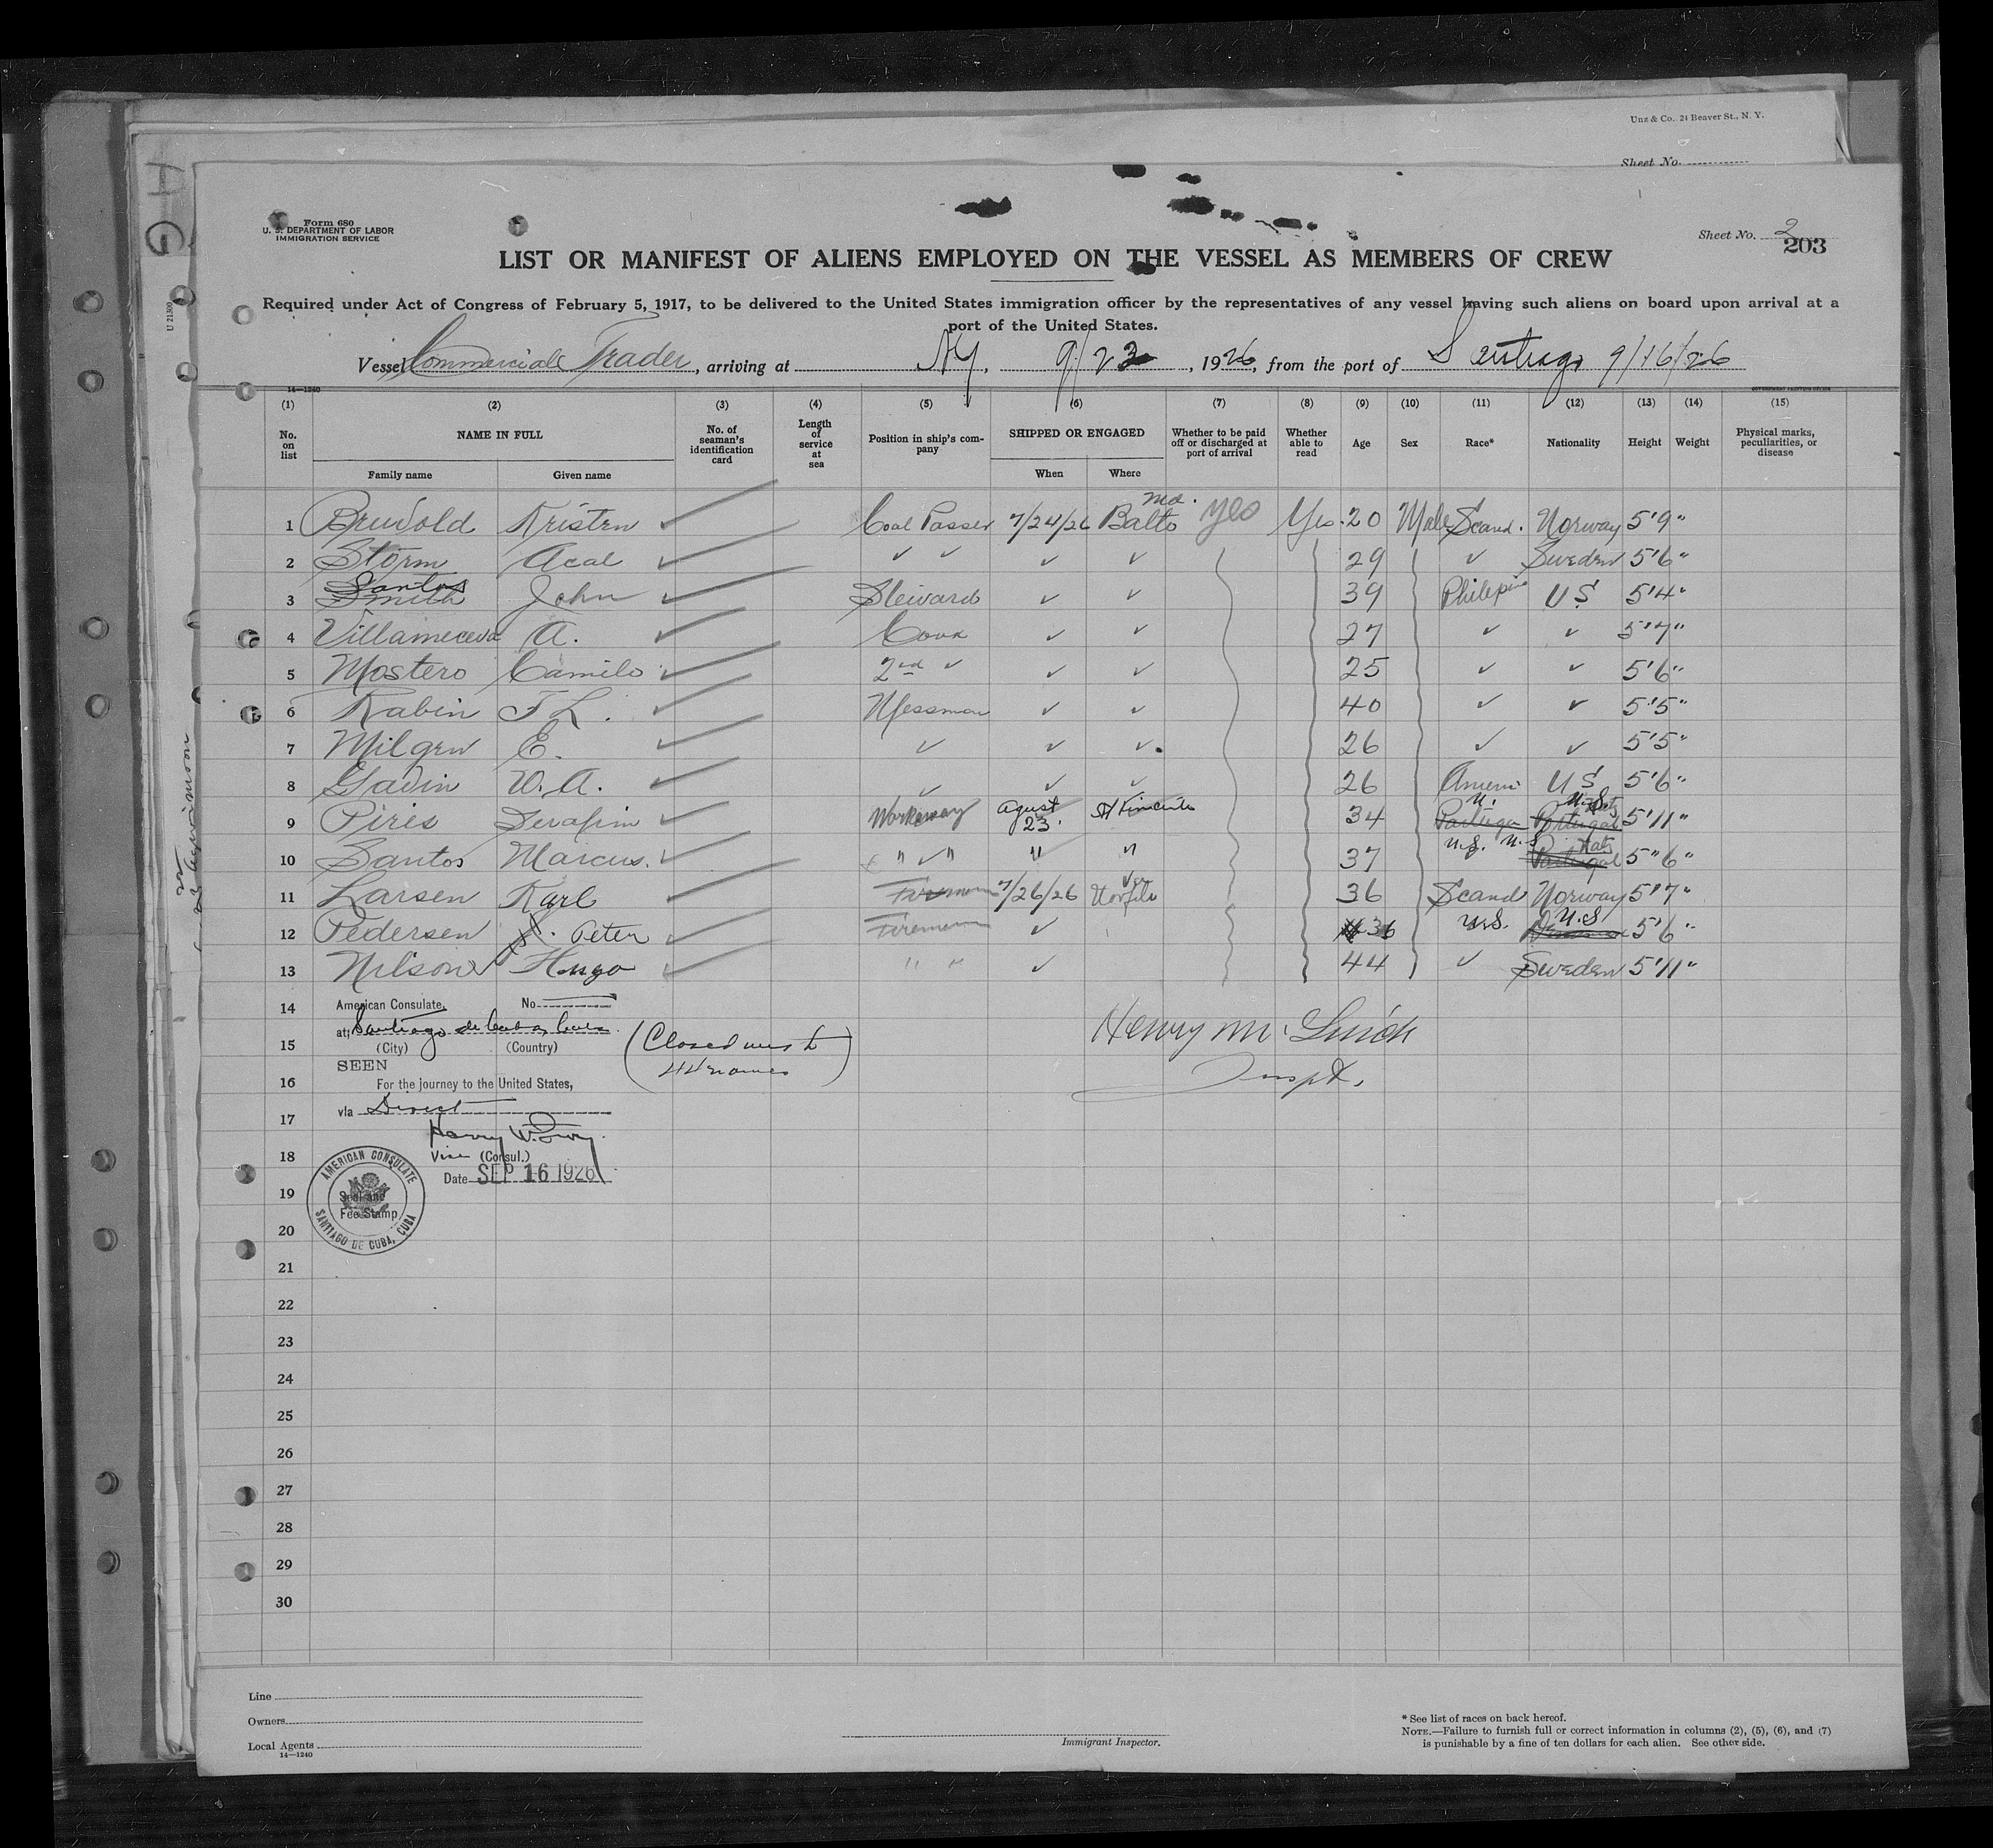 Unz & Co. 24 Beaver St., N. Y.
Sheet No.
Form 680
U. S. DEPARTMENT OF LABOR
IMMIGRATION SERVICE
Sheet No. 2
203
LIST OR MANIFEST OF ALIENS EMPLOYED ON THE VESSEL AS MEMBERS OF CREW
Required under Act of Congress of February 5, 1917, to be delivered to the United States immigration officer by the representatives of any vessel having such aliens on board upon arrival at a
port of the United States.
Vessel Commercial Trader, arriving at NY, 9/23, 1926, from the port of Santiago 9/16/26
14—1240
GOVERNMENT PRINTING OFFICE
(1) (2) (3) (4) (5) (6) (7) (8) (9) (10) (11) (12) (13) (14) (15)
No. on list NAME IN FULL No. of seaman's identification card Length of service at sea Position in ship's company SHIPPED OR ENGAGED Whether to be paid off or discharged at port of arrival Whether able to read Age Sex Race* Nationality Height Weight Physical marks, peculiarities, or disease
Family name Given name When Where
1 Bruvold Kristen ✓ Coal Passer 7/24/26 Balto Md. yes Yes 20 Male Scand. Norway 5'9"
2 Storm Acal ✓ ✓ ✓ ✓ ✓ 29 ✓ Sweden 5'6"
3 Smith Santos John ✓ Steward ✓ ✓ 39 Philepin US 5'4"
4 A. ✓ Cook ✓ ✓ 27 ✓ ✓ 5'7"
5 Mostero Camilo ✓ 2nd ✓ ✓ ✓ 25 ✓ ✓ 5'6"
6 Rabin F L. ✓ Messman ✓ ✓ 40 ✓ ✓ 5'5"
7 Milgen E. ✓ ✓ ✓ ✓ 26 ✓ ✓ 5'5"
8 Gadin W. A. ✓ ✓ ✓ ✓ 26 Ameri US 5'6"
9 Piris Serafim ✓ Workaway Agust 23. St Vincente 34 Portugal U.S. 5'11"
10 Santos Marcus. ✓ " ✓ " " " 37 U.S. U.S Portugal 5"6"
11 Larsen Karl Firemen 7/26/26 Norfolk Va 36 Scand Norway 5'7"
12 Pedersen Peter ✓ Firemen ✓ 36 U.S. U.S 5'6"
13 Nilson Hugo ✓ " " ✓ 44 ✓ Sweden 5'11"
14 American Consulate, No.
at Santiago de Cuba, Cuba
15 (City) (Country)
(Closed with
44 names)
Henry M.
Inspt.
SEEN
16 For the journey to the United States,
via Direct
17
Harry W. Story
18 Vice (Consul.)
Date SEP 16 1926
AMERICAN CONSULATE
SANTIAGO DE CUBA, CUBA
Seal and
Fee Stamp
19
20
21
22
23
24
25
26
27
28
29
30
Line
Owners
Local Agents
14—1240
Immigrant Inspector.
* See list of races on back hereof.
NOTE.—Failure to furnish full or correct information in columns (2), (5), (6), and (7)
is punishable by a fine of ten dollars for each alien. See other side.